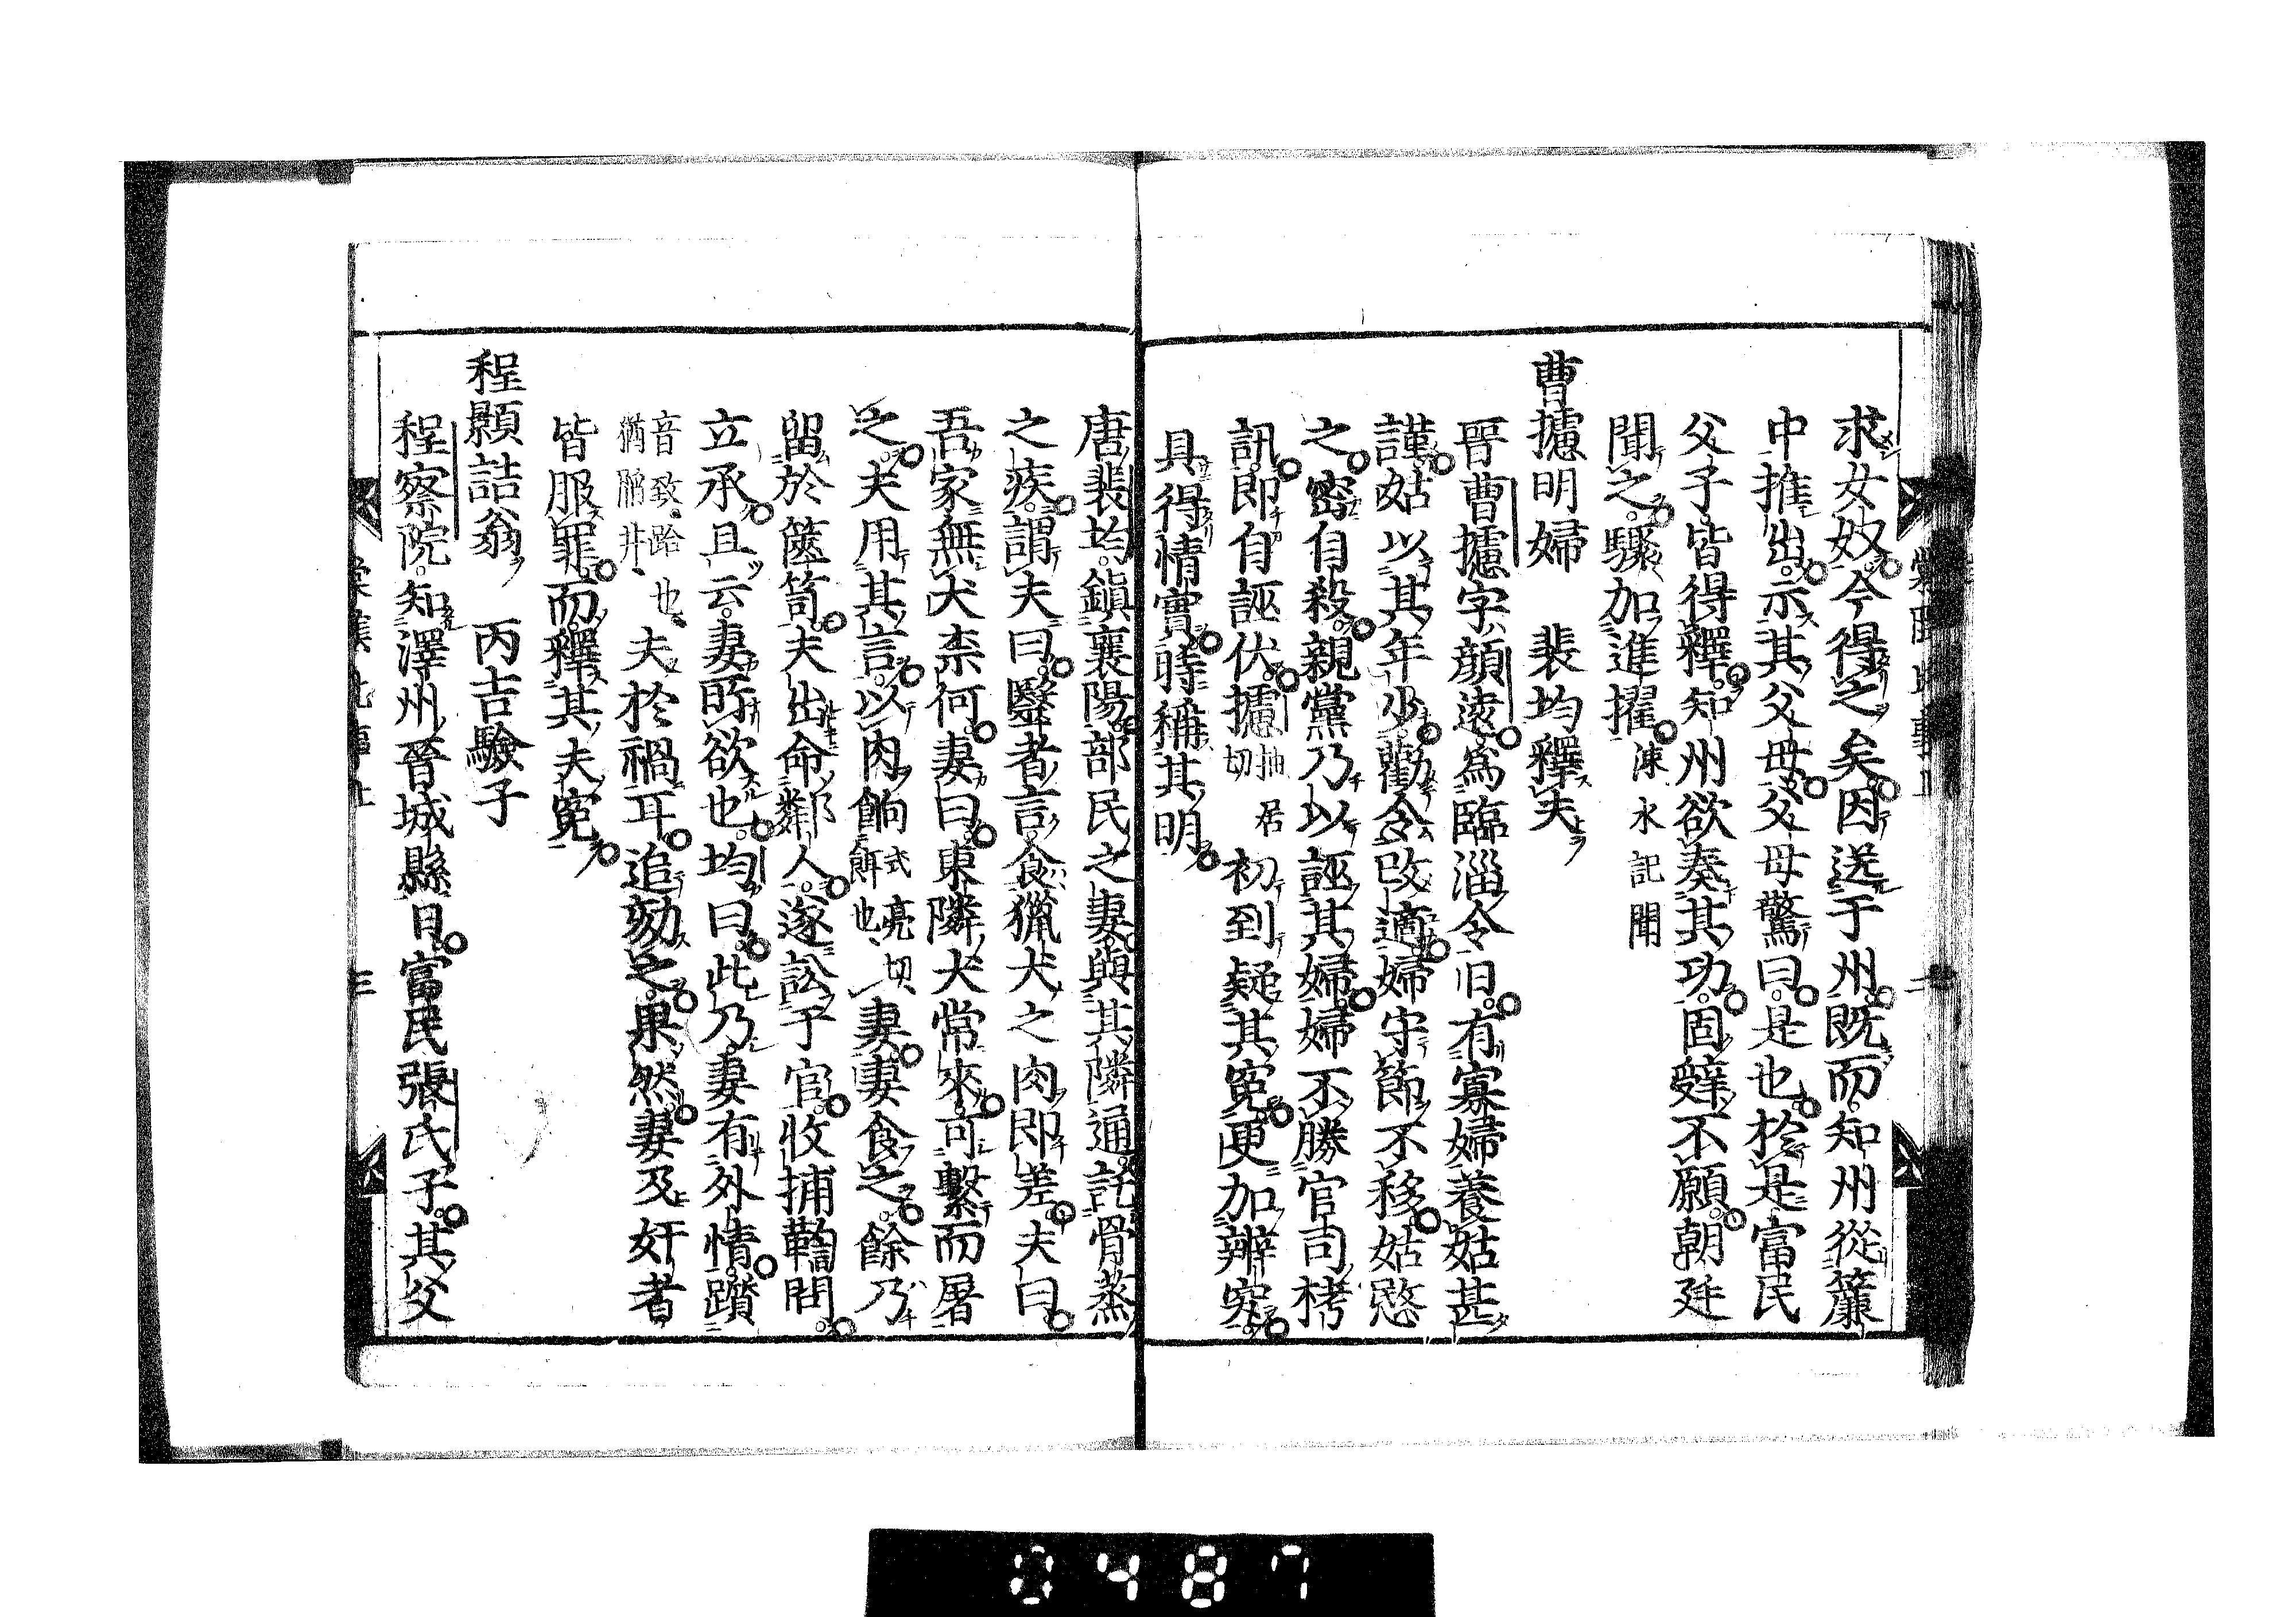 求女奴今得之矣因送于州既而知州從簾
中推出示其父母父母驚曰是也於是富民
父子皆得釋知州欲奏其功固辤不願朝廷
聞之驟加進擢 涑水記聞
曹攄明婦 裴均釋夫
晉曹攄字顔遠爲臨淄令旧有寡婦養姑甚
謹姑以其年少勸令改適婦守節不移姑愍
之密自殺親黨乃以誣其婦婦不勝官司拷
訊即自誣伏攄 抽居切 初到疑其寃更加辨究
具得情實時稱其明
唐裴均鎭襄陽部民之妻與其隣通託骨蒸
之疾謂夫曰醫者言食猟犬之肉即差夫曰
吾家無犬柰何妻曰東隣犬常來可繫而屠
之夫用其言以肉餉 式亮切餌也 妻妻食之餘乃
留於篋笥夫出命鄰人遂訟于官收捕鞫問
立承且云妻所欲也均曰此乃妻有外情躓
音致跲也猶陷井 夫於禍耳追劾之果然妻及奸者
皆服罪而釋其夫寃
程顥詰翁 丙吉驗子
程察院知澤州晉城縣日富民張氏子其父
三
0487